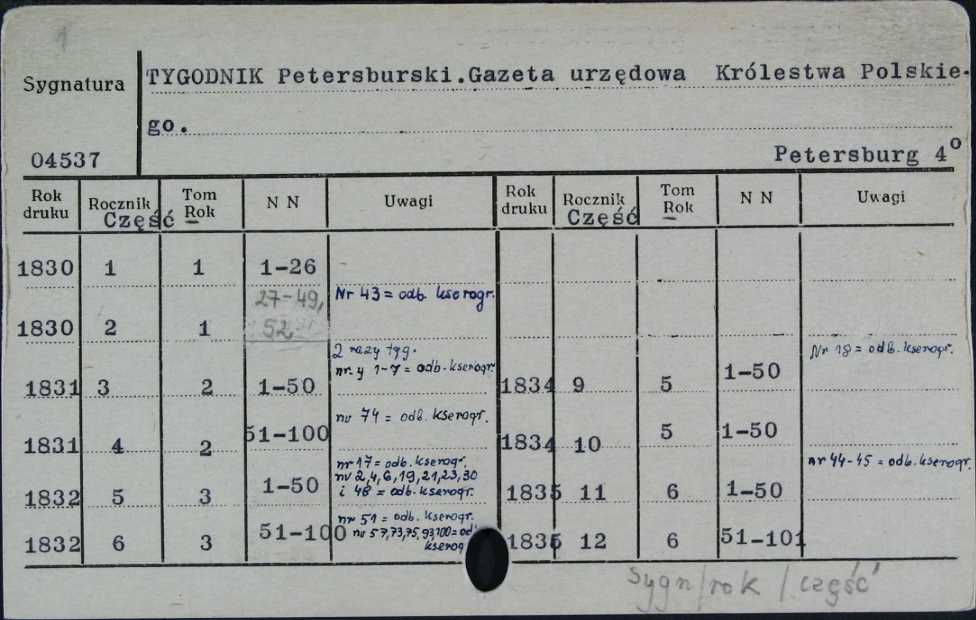 1
Sygnatura
TYGODNIK Petersburski.Gazeta urzędowa Królestwa Polskie-
go.
04537
Petersburg 4°
Rok druku Rocznik Część Tom Rok N N Uwagi Rok druku Rocznik Część Tom Rok N N Uwagi
1830 1 1 1-26
1830 2 1 27-49, 52 Nr 43 = odb. kserogr.
1831 3 2 1-50 2 razy tyg. nr. y 1-7 = odb. kserogr. 1834 9 5 1-50 Nr 18 = odb. kserogr.
1831 4 2 51-100 nr 74 = odb. kserogr. 1834 10 5 1-50
1832 5 3 1-50 nr 17 = odb. kserogr. nr 2,4,6,19,21,23,30 i 48 = odb. kserogr. 1835 11 6 1-50 nr 44-45 = odb. kserogr.
1832 6 3 51-100 nr 51 = odb. kserogr. nr 57,73,75,93,100 = od kserog 1835 12 6 51-101
sygn/rok / część